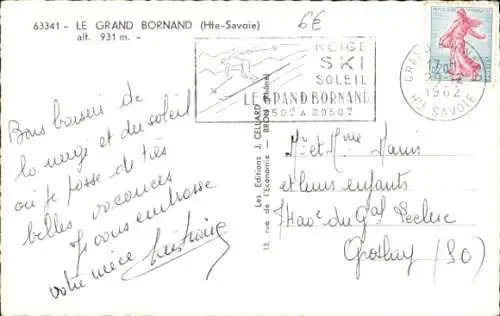 63341 - LE GRAND BORNAND (Hte-Savoie)
alt. 931 m. -
6€
NEIGE
SKI
SOLEIL
LE GRAND BORNAND
950m A 2050m
GRAND
17
1962
Hte SAVOIE
Bons baisers de
la neige et du soleil
où je passe de très
belles vacances
Je vous embrasse
votre nièce
Les Editions J. CELLARD
13, rue de l'Economie - BRON (Rhône)
M. et Mme
et leurs enfants
du Gal Leclerc
Groslay (SO)